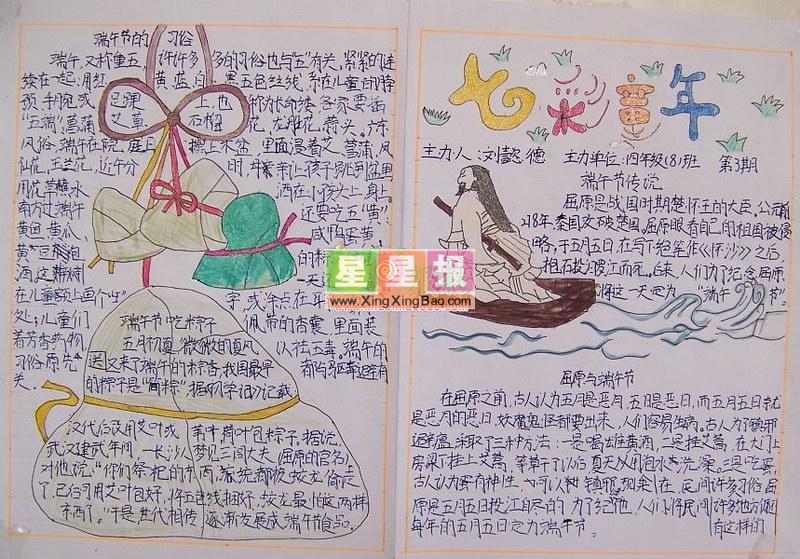 端午节的习俗
端午,又称重五,许许多多的习俗也与"五"有关,紧紧的连
续在一起:用红黄蓝白黑五色丝线,系在儿童的脖
颈、手腕或足踝上,也称为长命缕。各家要插
"五端":菖蒲、艾草、石榴花、龙船花、蒜头。
风俗,端午在院庭上摆上木盆,里面浸着艾、菖蒲、凤
仙花、玉兰花,近午分时,母亲让孩子
用花草蘸水洒在小孩头上、身上。
南方过端午还要吃五"黄":
黄鱼、黄瓜、咸鸭蛋黄、
酒
在儿童额头上画个"王"字,或涂点在耳
处;儿童们佩带的香囊,里面装
着芳香药物,以祛五毒。端午的
习俗原先都与驱毒避疫有
关。
端午节吃粽子
五月初夏,微微的夏风
送又来了端午的粽香,我国最早
的粽子是"简粽",据《初学记》记载
汉代后改用艾叶或苇叶、荷叶包粽子,据说,
武汉建武年间,长沙人梦见三闾大夫(屈原的官名)
对他说:"你们祭祀的东西,都被蛟龙偷走
了,已后可用艾叶包好,将五色线捆好,蛟龙最怕这两样
东西了。"于是,世代相传,逐渐发展成端午食品。
七彩童年
主力人 刘懿德 主力单位:四年级(8)班 第3期
端午节传说
屈原是战国时期楚怀王的大臣。公元前
278年,秦国攻破楚国。屈原眼看自己的祖国被侵
略,于五月五日,在写下绝笔作《怀沙》之后,
抱石投汨罗江而死。后来,人们为了纪念屈原
将这一天定为"端午节"。
星星报
www.XingXingBao.com
屈原与端午节
在屈原之前,古人认为五月是恶月,五日是恶日,而五月五日就
是恶月的恶日,妖魔鬼怪都要出来,人们容易生病。古人为了驱邪
避瘟,采取了三种方法:一是喝出雄黄酒,二是挂艾蒿,在大门上
房梁下挂上艾蒿,等草干了以后夏天人们泡水去洗澡,三是吃枣,
古人认为枣有神性,可以树镇邪。如果在民间许多习俗屈
原是五月五日投江自尽的,为了纪念他,人们将民间许多地方便有这样的
每年的五月五日定为端午节。